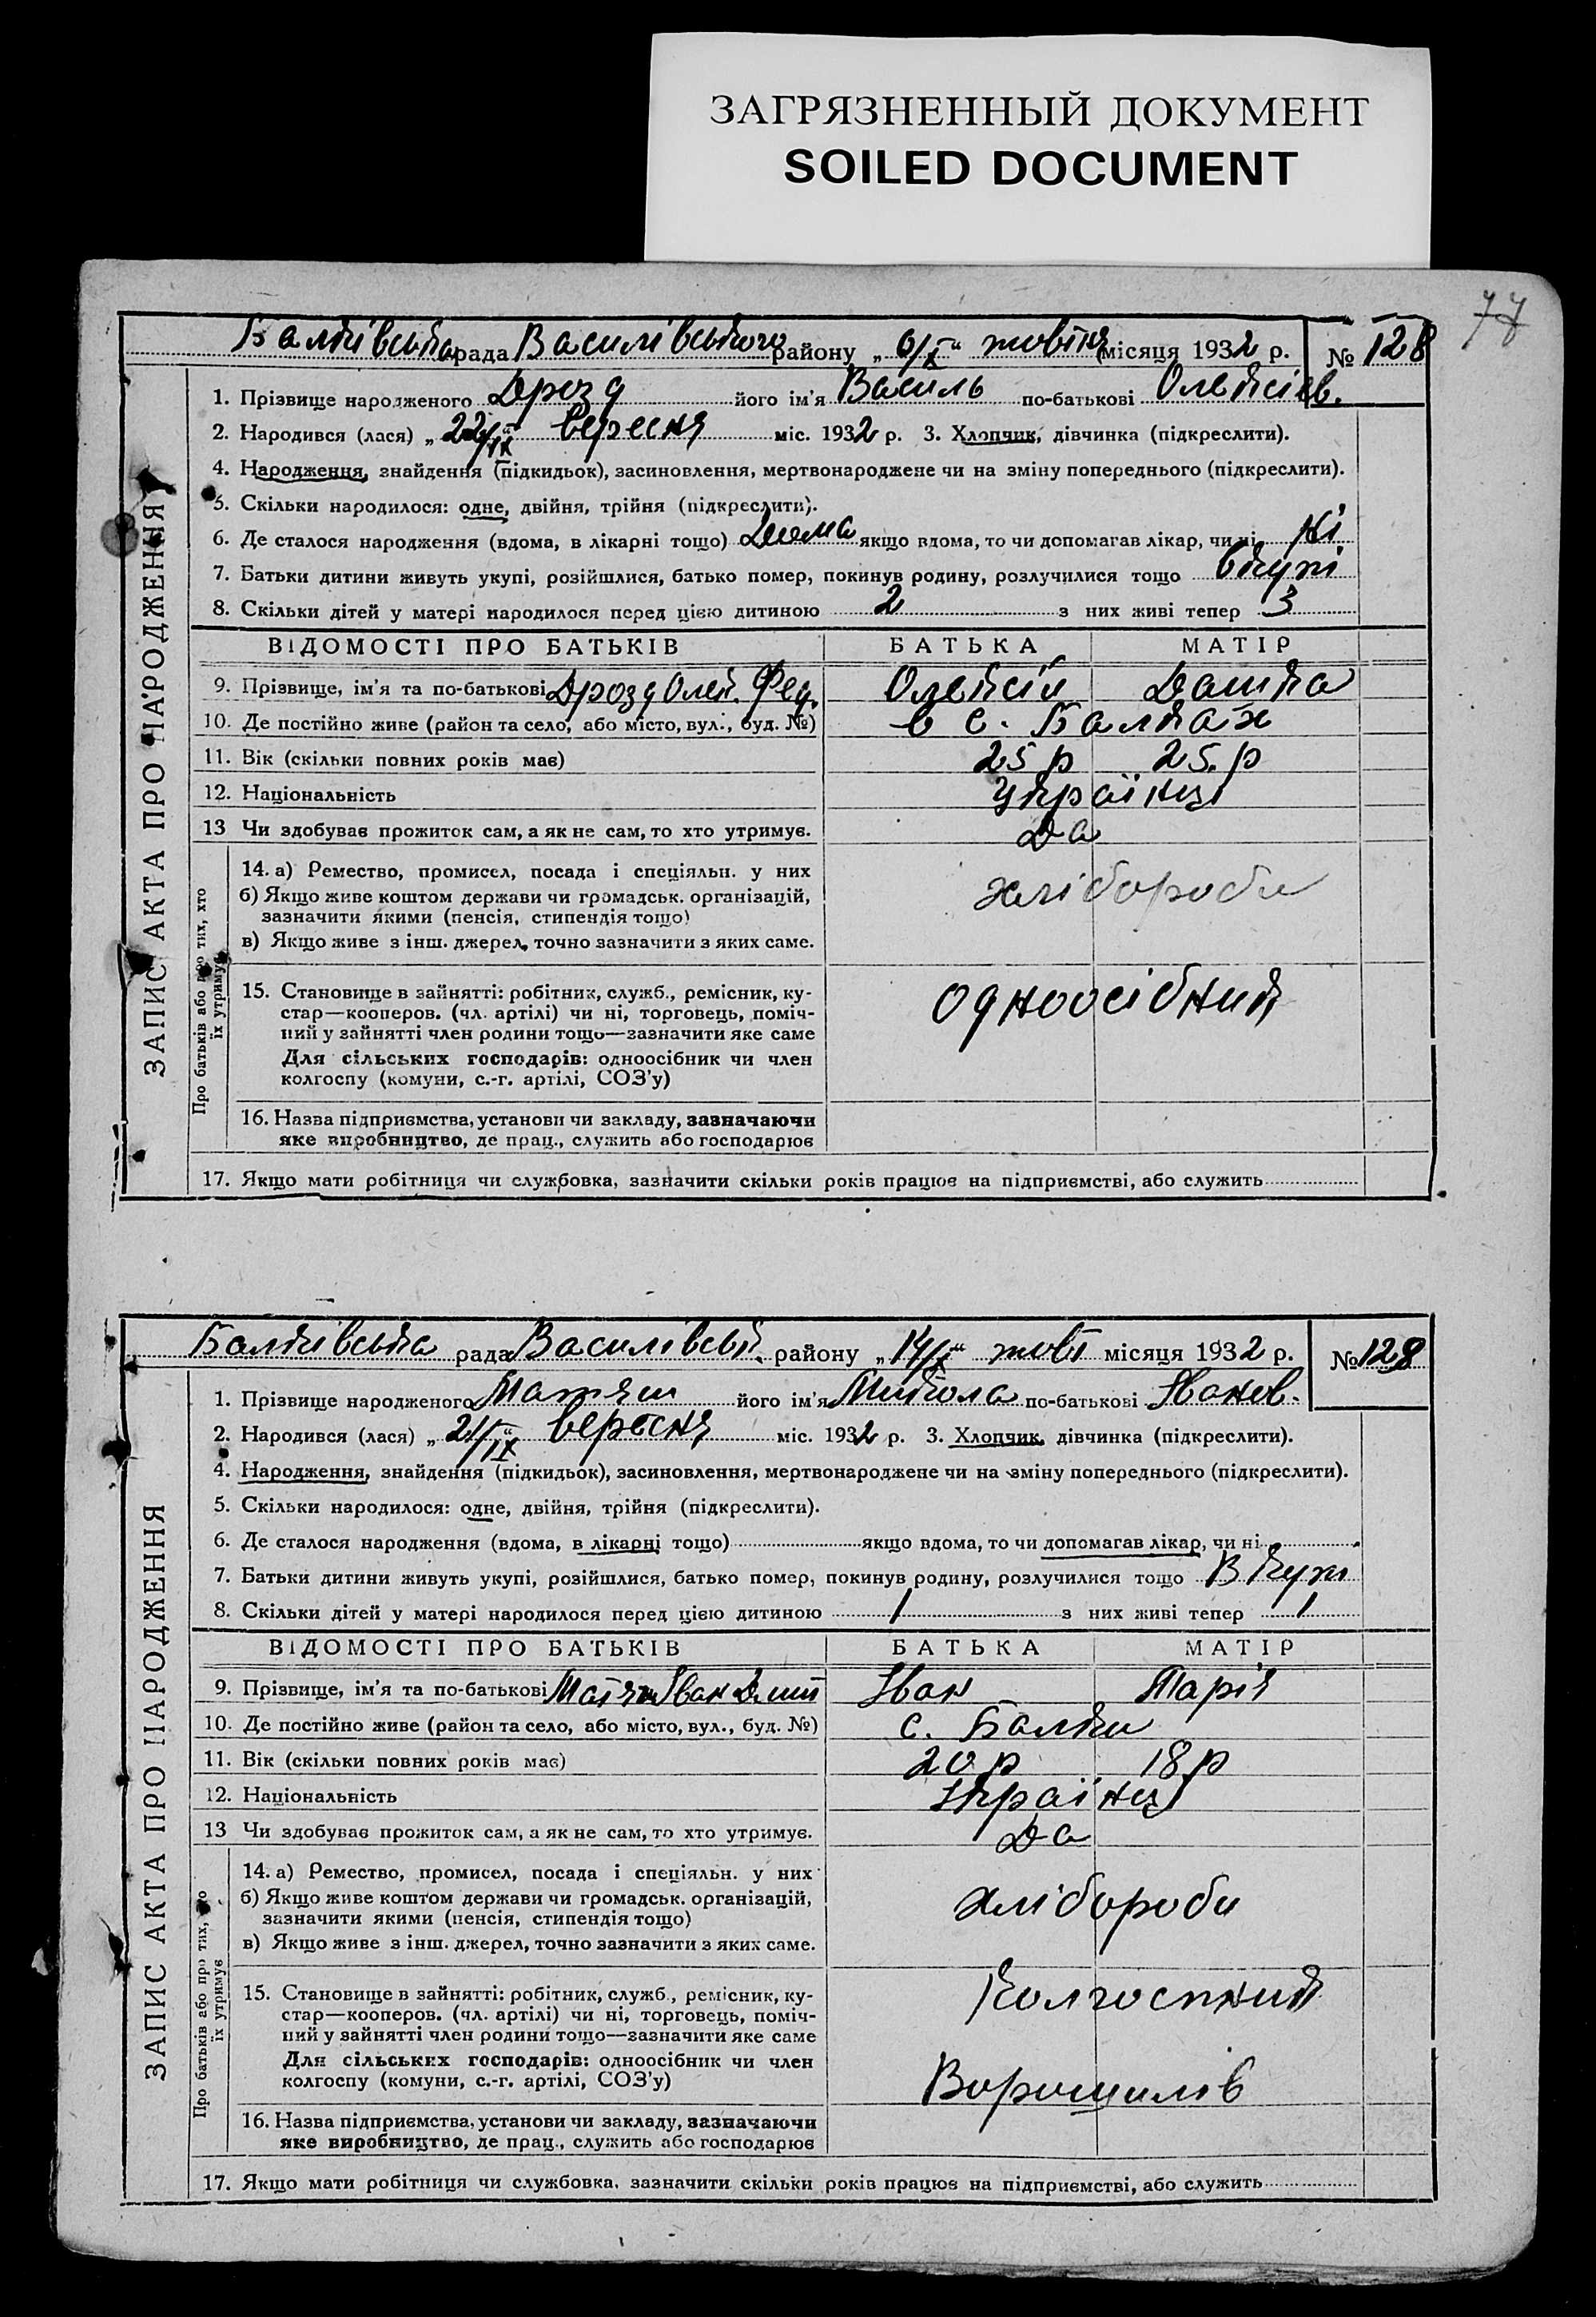 ЗАГРЯЗНЕННЫЙ ДОКУМЕНТ
SOILED DOCUMENT
77
Балківська рада Василівського району „ 6/X “ жовтня місяця 1932 р. № 128
ЗАПИС АКТА ПРО НАРОДЖЕННЯ
1. Прізвище народженого Дрозд його ім'я Василь по-батькові Олексієв.
2. Народився (лася) „ 22/IX “ вересня міс. 1932 р. 3. Хлопчик, дівчинка (підкреслити).
4. Народження, знайдення (підкидьок), засиновлення, мертвонароджене чи на зміну попереднього (підкреслити).
5. Скільки народилося: одне, двійня, трійня (підкреслити).
6. Де сталося народження (вдома, в лікарні тощо) Дома якщо вдома, то чи допомагав лікар, чи ні Ні
7. Батьки дитини живуть укупі, розійшлися, батько помер, покинув родину, розлучилися тощо вкупі
8. Скільки дітей у матері народилося перед цією дитиною 2 з них живі тепер 3
ВІДОМОСТІ ПРО БАТЬКІВ БАТЬКА МАТІР
9. Прізвище, ім'я та по-батькові Дрозд Олек. Фед. Олексій Дашка
10. Де постійно живе (район та село, або місто, вул., буд. №) в с. Балках
11. Вік (скільки повних років має) 25 р 25. р
12. Національність Українці
13 Чи здобував прожиток сам, а як не сам, то хто утримує. Да
Про батьків або про тих, хто їх утримує
14. а) Ремество, промисел, посада і спеціяльн. у них хлібороби
б) Якщо живе коштом держави чи громадськ. організацій,
зазначити якими (пенсія, стипендія тощо)
в) Якщо живе з інш. джерел, точно зазначити з яких саме.
15. Становище в зайнятті: робітник, служб., ремісник, ку- одноосібний
стар—кооперов. (чл. артілі) чи ні, торговець, поміч-
ний у зайнятті член родини тощо—зазначити яке саме
Для сільських господарів: одноосібник чи член
колгоспу (комуни, с.-г. артілі, СОЗ'у)
16. Назва підприємства, установи чи закладу, зазначаючи
яке виробництво, де прац., служить або господарює
17. Якщо мати робітниця чи службовка, зазначити скільки років працює на підприємстві, або служить
Балківська рада Василівськ. району „ 14/X “ жовт місяця 1932 р. № 129
ЗАПИС АКТА ПРО НАРОДЖЕННЯ
1. Прізвище народженого Матяш його ім'я Микола по-батькові Іванов.
2. Народився (лася) „ 21/IX “ вересня міс. 1932 р. 3. Хлопчик, дівчинка (підкреслити).
4. Народження, знайдення (підкидьок), засиновлення, мертвонароджене чи на зміну попереднього (підкреслити).
5. Скільки народилося: одне, двійня, трійня (підкреслити).
6. Де сталося народження (вдома, в лікарні тощо) якщо вдома, то чи допомагав лікар, чи ні
7. Батьки дитини живуть укупі, розійшлися, батько помер, покинув родину, розлучилися тощо Вкупі
8. Скільки дітей у матері народилося перед цією дитиною 1 з них живі тепер 1
ВІДОМОСТІ ПРО БАТЬКІВ БАТЬКА МАТІР
9. Прізвище, ім'я та по-батькові Матяш Іван Дмит Іван Марія
10. Де постійно живе (район та село, або місто, вул., буд. №) с. Балки
11. Вік (скільки повних років має) 20 р 18 р
12. Національність Українці
13 Чи здобував прожиток сам, а як не сам, то хто утримує. Да
Про батьків або про тих, хто їх утримує
14. а) Ремество, промисел, посада і спеціяльн. у них хлібороби
б) Якщо живе коштом держави чи громадськ. організацій,
зазначити якими (пенсія, стипендія тощо)
в) Якщо живе з інш. джерел, точно зазначити з яких саме.
15. Становище в зайнятті: робітник, служб., ремісник, ку- Колгоспний
стар—кооперов. (чл. артілі) чи ні, торговець, поміч-
ний у зайнятті член родини тощо—зазначити яке саме
Для сільських господарів: одноосібник чи член Ворошилів
колгоспу (комуни, с.-г. артілі, СОЗ'у)
16. Назва підприємства, установи чи закладу, зазначаючи
яке виробництво, де прац., служить або господарює
17. Якщо мати робітниця чи службовка, зазначити скільки років працює на підприємстві, або служить